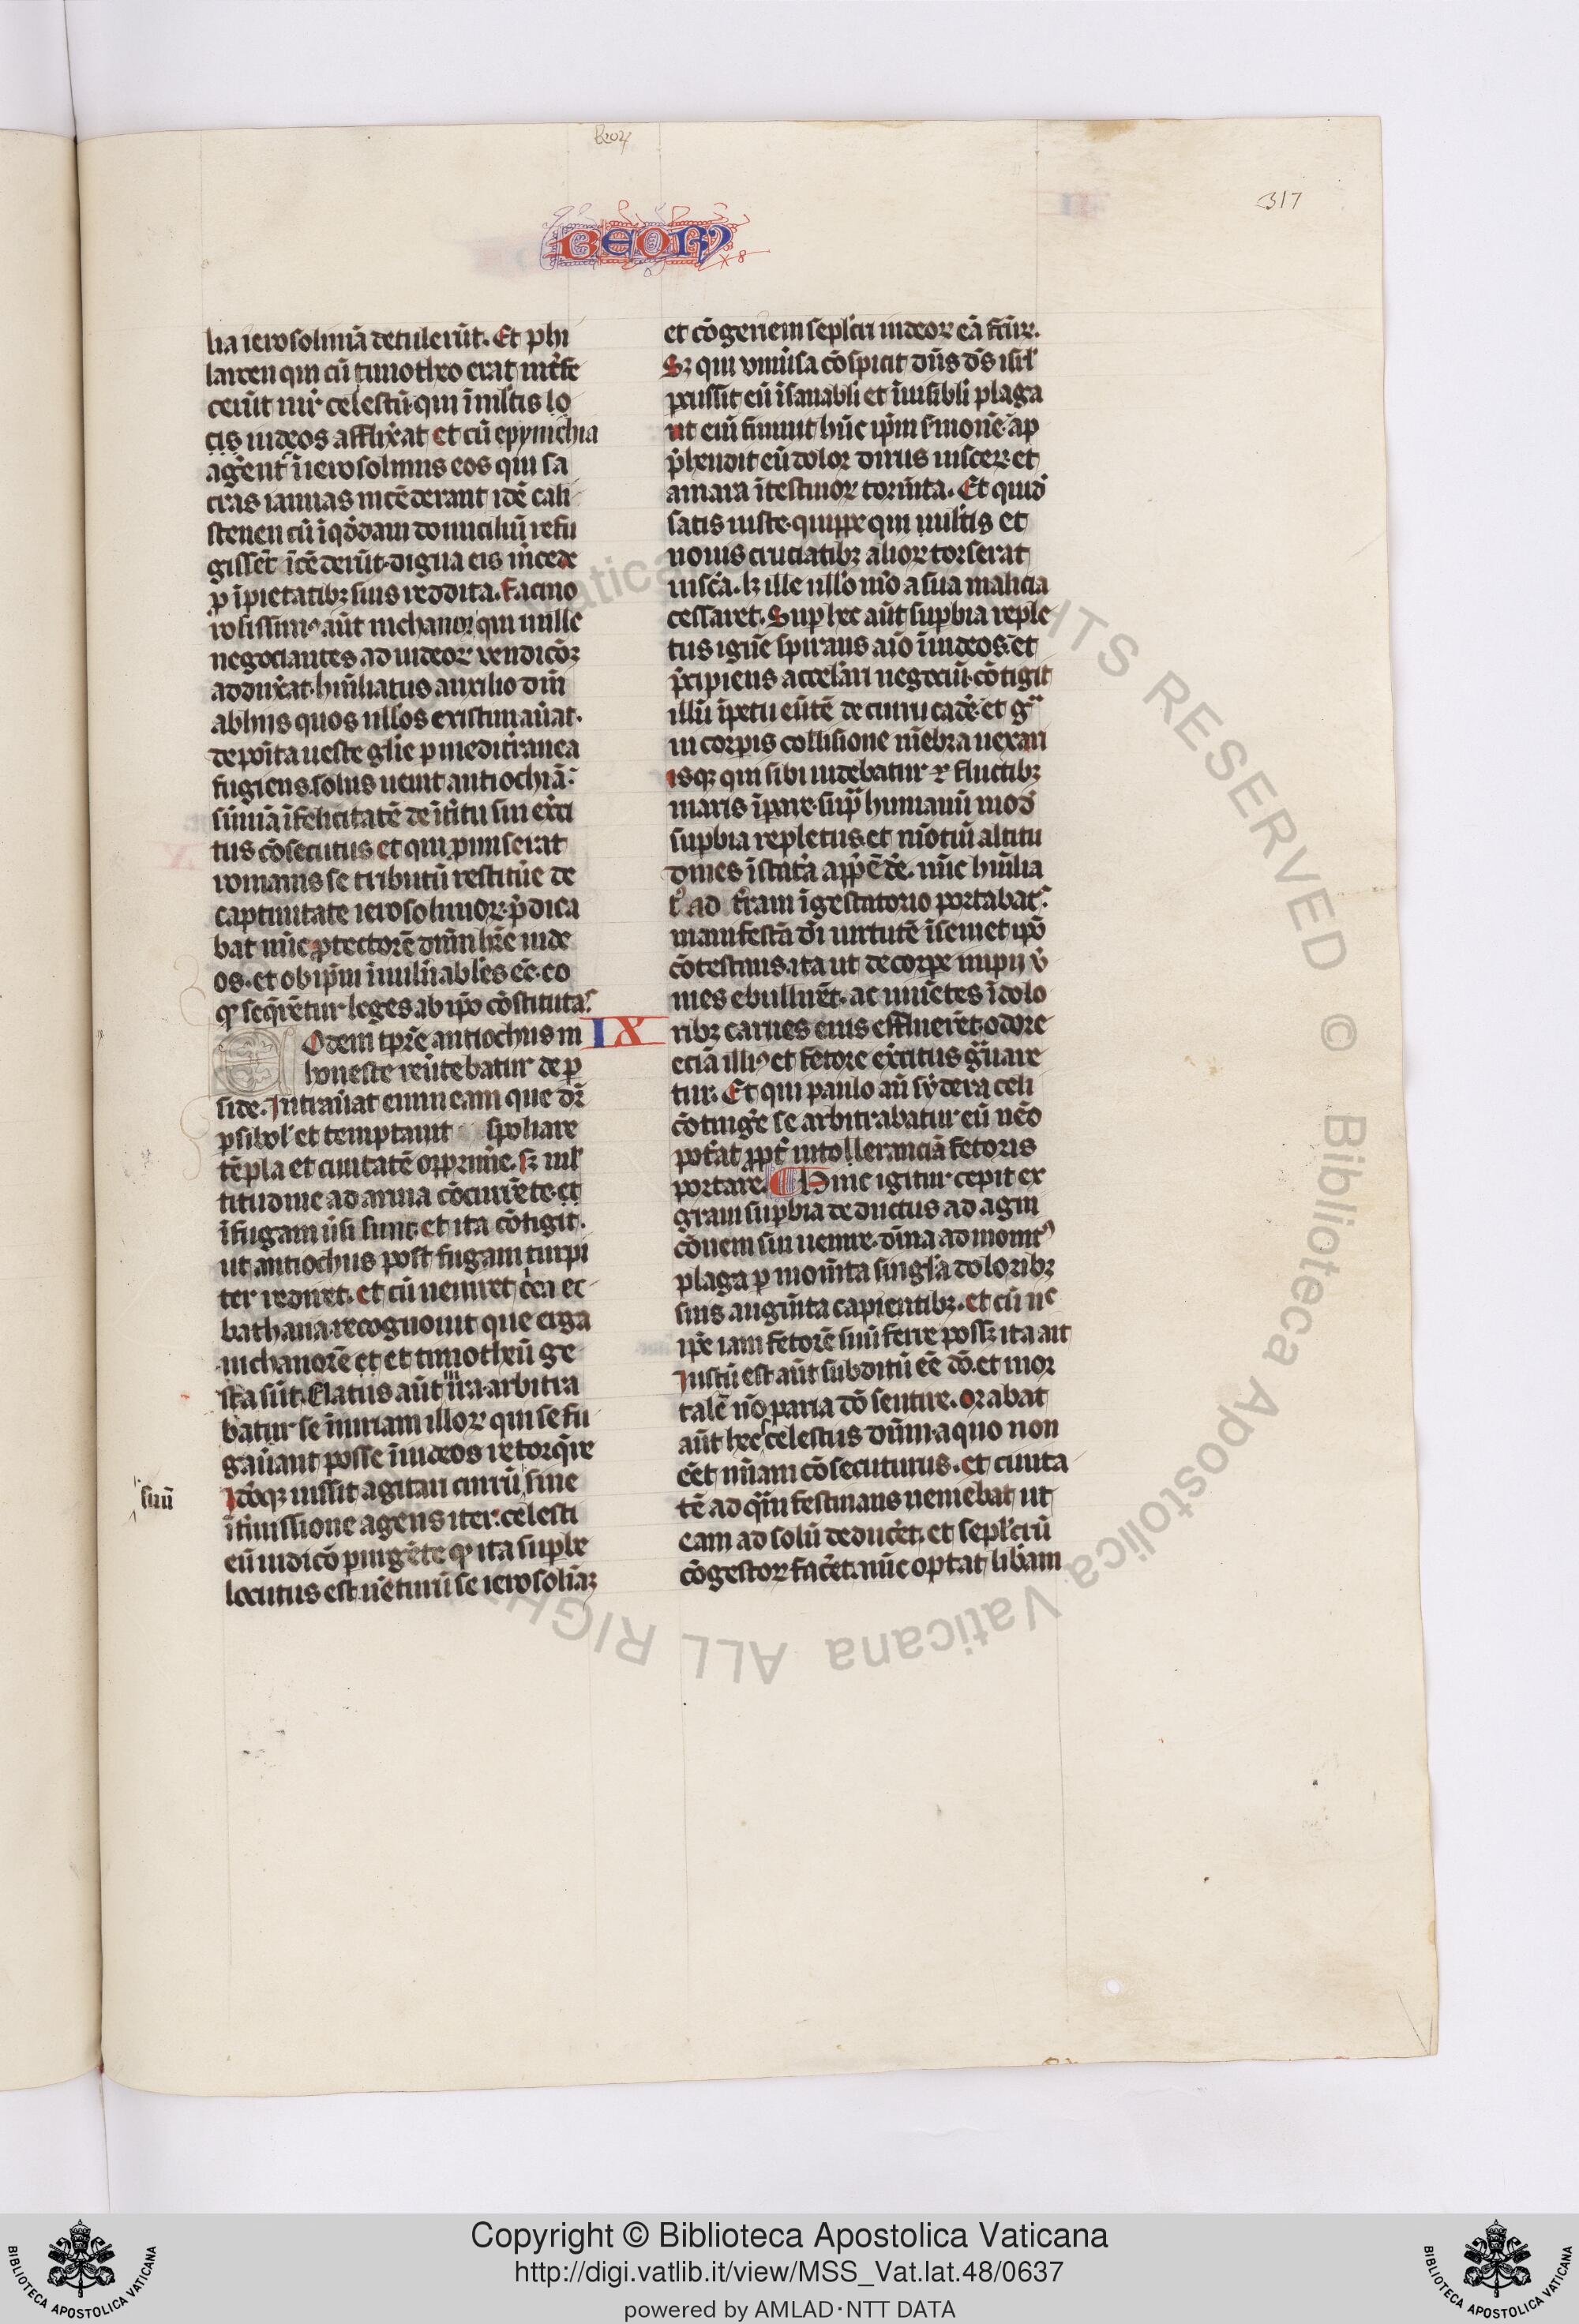 317
lia ierosolimā detulerūt. Et phi
larcen qui cū timotheo erat int̄fe
cerūt uir̄ celestū qui ī mltis lo
cis iudeos afflix̄at et cū epynichia
agerent̄ ī ierosolimis eos qui sa
cras ianuas incēderant idē cali
stenen cū ī qōdam domiciliū refu
gissēt īcēderūt digna eis m̄cede
p īpietatibꝫ suis reddita. Facino
rosissimꝰ aūt nichanor qui mille
negociantes ad iudeoꝝ vendicōꝫ
addux̄at. hūiliatus auxilio dn̄i
ab hiis quos nllōs existimau̅at.
deposita ueste glīe p meditiranea
fugiens. solus uenit antiochiā.
sūmā īfelicitatē de ītitu sui ex̄ci
tus cōsecutus et qui pmiserat
romanis se tributū restituē de
captiuitate ierosolimoꝝ p̄dica
bat nūc ꝓtectorē dn̄m hr̄e iude
os. et ob ip̄m inuuln̄ables eē. eo
ꝙ seq̄rētur leges ab ip̄o cōstitutas
Eodem tpr̄e antiochus in
IX
honeste reūtebatur de p
side. Intrau̅at enim eam que dr̄
psipol et temptauit spoliare
tēpla et ciuitatē opprimē. sꝫ ml
titudine ad arma cōcurrēte. et
ī fugam ūsi sunt. et ita cōtigit.
ut antiochus post fugam turpi
ter rediret. et cū ueniret c̄ca ec
bathana. recognouit que erga
nichanorē et et timotheū ge
sta sūt. Elatus aūt in ira. arbitra
batur se iniuriam illoꝝ qui se fu
gau̅ant posse ī iudeos retorq̄re
Idoꝙꝫ iussit agitari currū sine
suū
īt̄missione agens iter. celesti
eū iudicō purgēte ꝙ ita supbe
locutus est. uēturū se ierosolīaꝫ
et cōgeriem seplcri iudeoꝝ eā fc̄urꝫ.
Sꝫ qui vniūsa cōspicit dn̄s ds̄ isrl
pcussit eū īsanabli et īuisibli plaga
ut eni̅ finiuit hūc ip̄m smonē. ap
p̄hendit eū dolor dirus uisceꝝ et
amara ītestinoꝝ torm̄ta. Et quid̄
satis iuste. quippe qui multis et
nouis cruciatibꝫ alioꝝ torserat
uisc̄a. lꝫ ille nllō mō a sua malicia
cessaret. Sup hec aūt supbia reple
tus ignē spirans aīo ī iudeos. et
p̄cipiens accelāri negociū. cōtigit
illū īpetu eūtē de curru cadē. et gͣ
ui corpis collisione mēbra uexari
isqꝫ qui sibi uidebatur ⁊ fluctibꝫ
maris īpare. sup̄ humanū mod̄
supbia repletus. et mōtiū altitu
dines ī statā appēdē. nūc hūilia
t̄ ad t̄ram ī gestatorio portabat̄.
manifestā di̅ uirtutē ī semet ip̄o
cōtestans. ita ut de corpe impii ū
mes ebullirēt. ac uiuētes ī dolo
ribꝫ carnes eius effluerēt. odore
eciā illiꝰ et fetore ex̄citus gͣuare
tur. Et qui paulo aū sydera celi
cōtingē se arbitrabatur. eū nēo
pot̄at ppt̄ intolleranciā fetoris
portare. ¶ Hinc igitur cepit ex
graui supbia deductus ad agni
cōnem sui uenire. diīna admonitꝰ
plaga p mom̄ta singlā doloribꝫ
suis augm̄ta capientibꝫ. et cū nᵉ
ip̄e iam fetorē suū ferre possꝫ ita ait
Iustū est aūt subditū eē dō. et mor
talē nō paria dō sentire. orabat
aūt hec scelestus dn̄m. a quo non
eēt mīam cōsecuturus. et ciuita
tē ad quā festinans ueniebat ut
eam ad solū deducēt. et seplcrū
cōgestoꝝ facēt. nūc optat libām
Copyright © Biblioteca Apostolica Vaticana
http://digi.vatlib.it/view/MSS_Vat.lat.48/0637
powered by AMLAD·NTT DATA